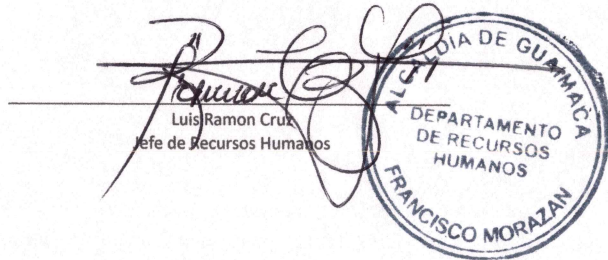 Luis Ramon Cruz
Jefe de Recursos Humanos
ALCALDIA DE GUAIMACA
DEPARTAMENTO
DE RECURSOS
HUMANOS
FRANCISCO MORAZAN